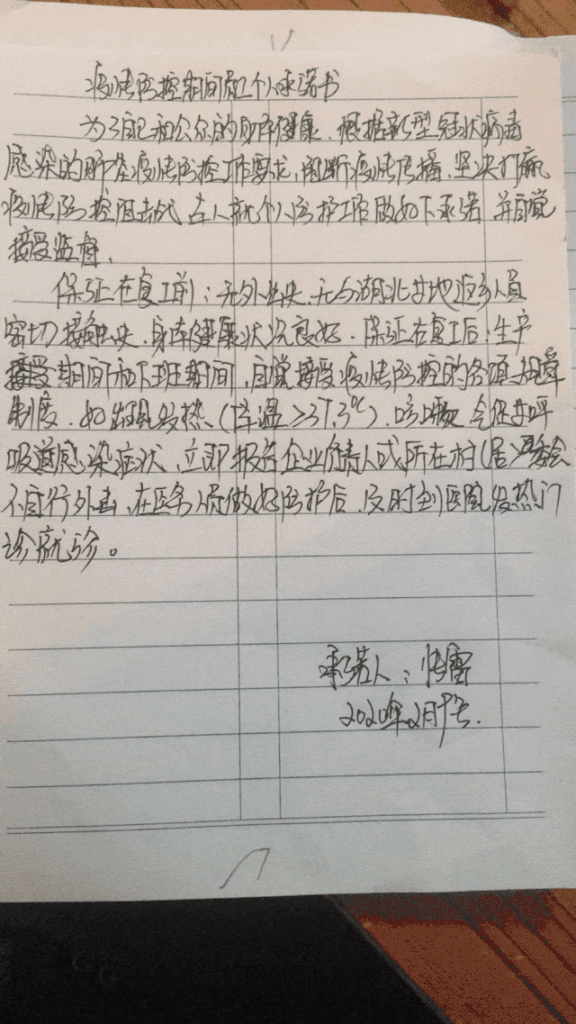 疫情防控期间员工个人承诺书
为了自己和公众的身体健康,根据新型冠状病毒
感染的肺炎疫情防控工作要求,阻断疫情传播,坚决打赢
疫情防控阻击战,本人就个人防护工作做如下承诺,并自觉
接受监督。
保证在复工前:无外出史,无与湖北等地返乡人员
密切接触史,身体健康状况良好。保证在复工后:生产
期间和下班期间,自觉接受疫情防控的各项规章
制度。如出现发热、(体温≥37.3℃)、咳嗽、气促等呼
吸道感染症状,立即报告企业负责人或所在村(居)委会
不自行外出,在医务人员做好防护后,及时到医院发热门
诊就诊。
承诺人:
2020年2月